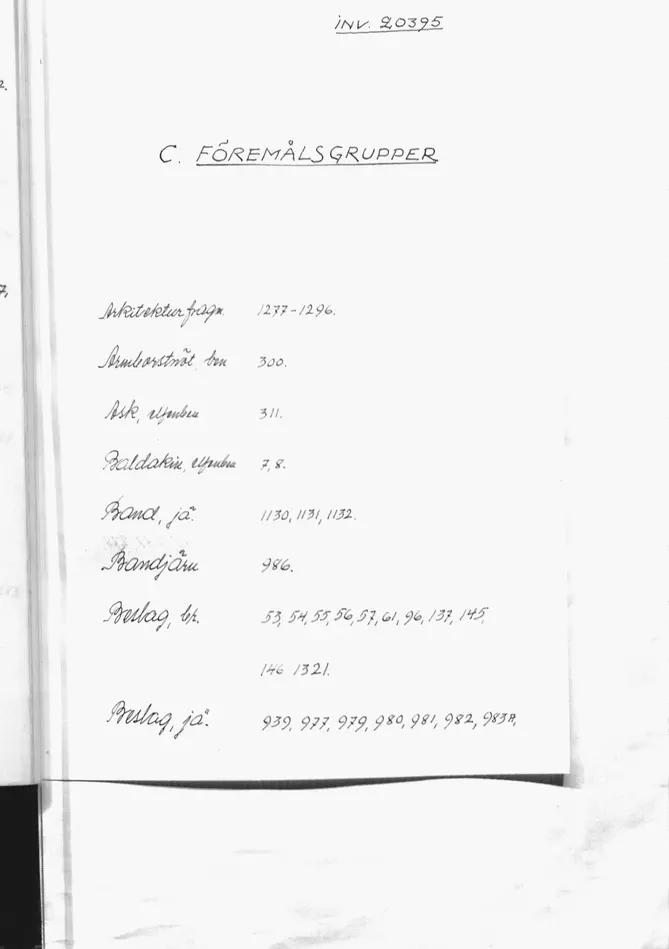 2.
7,
INV. 20395
C. FÖREMÅLSGRUPPER
Arkitekturfragm. 1277-1296.
Armborstnöt, ben 300.
Ask, elfenben 311.
Baldakin, elfenben 7, 8.
Band, jä. 1130, 1131, 1132.
Bandjärn 986.
Beslag, br. 53, 54, 55, 56, 57, 61, 96, 137, 145,
146 1321.
Beslag, jä. 939, 977, 979, 980, 981, 982, 983A,